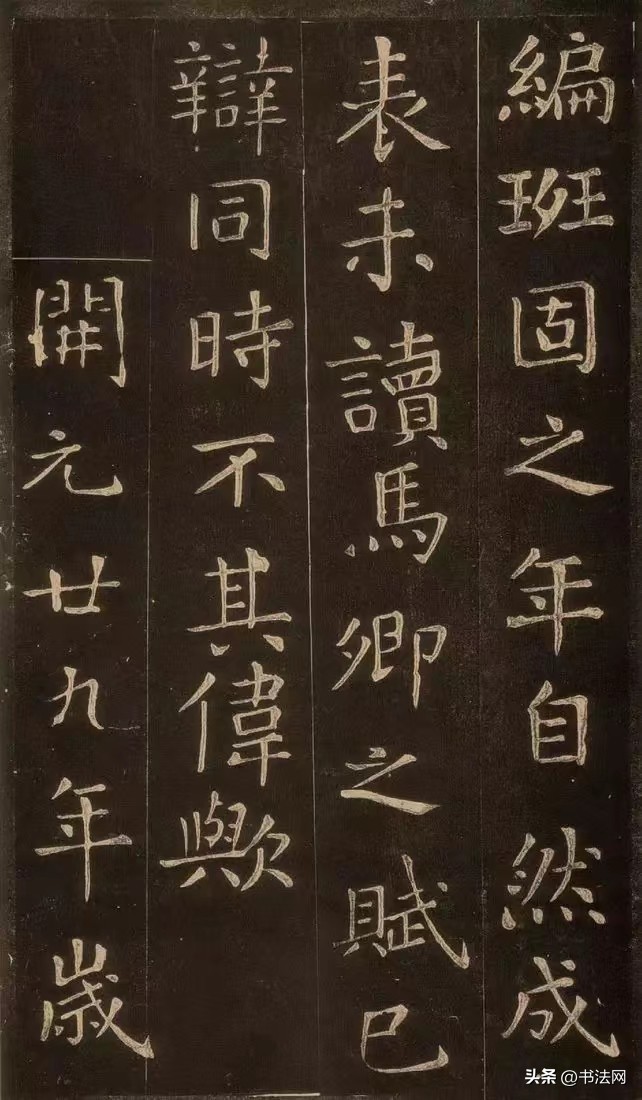 編班固之年自然成
表未讀馬卿之賦已
辯同時不其偉歟
開元廿九年歲
头条 @书法网